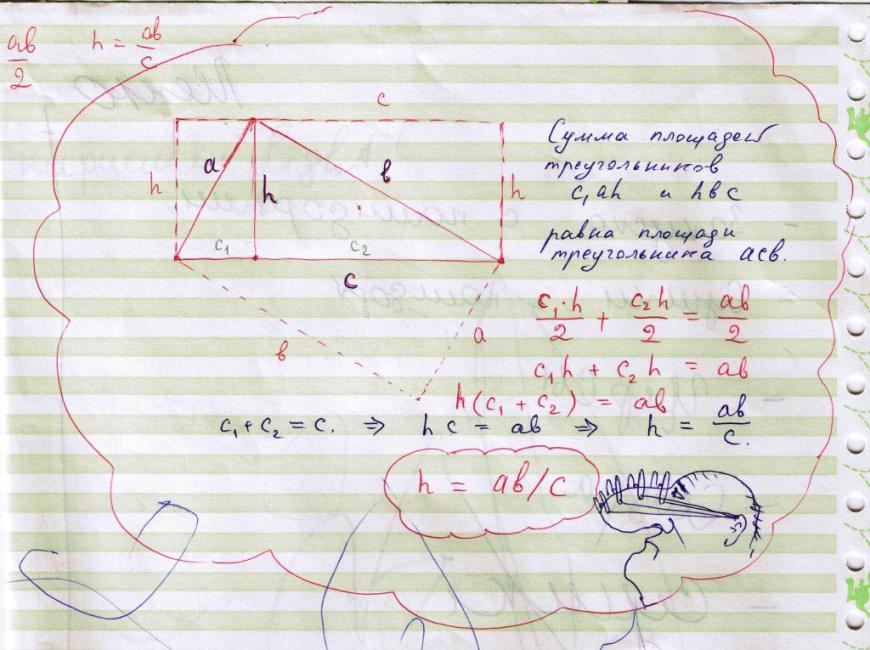 ab/2 h = ab/c
c
a
h
h
в
h
c₁
c₂
c
в
a
Сумма площадей
треугольников
c₁ah и hвc
равна площади
треугольника асв.
c₁·h/2 + c₂h/2 = ab/2
c₁h + c₂h = ab
h(c₁ + c₂) = ab
c₁ + c₂ = c. ⇒ hc = ab ⇒ h = ab/c.
h = ab/c